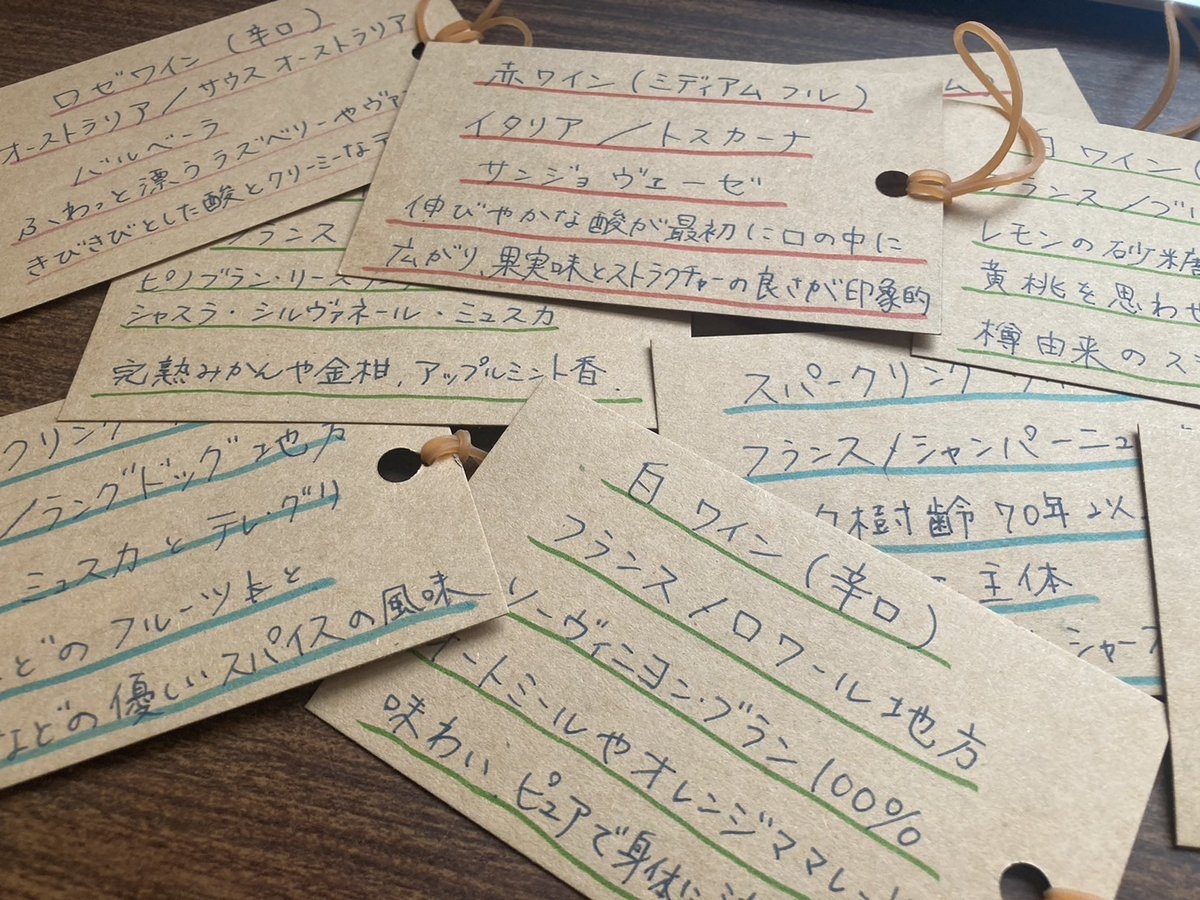 ロゼワイン (辛口)
オーストラリア/サウス オーストラリア
バルベーラ
ふわっと漂うラズベリーやヴァ
きびきびとした酸とクリーミーなテ
赤ワイン (ミディアム フル)
イタリア / トスカーナ
サンジョヴェーゼ
伸びやかな酸が最初に口の中に
広がり、果実味とストラクチャーの良さが印象的
ム)
白 ワイン (
ランス / ブル
レモンの砂糖
黄桃を思わせ
樽由来のス
フランス
ピノブラン・リースリン
シャスラ・シルヴァネール・ミュスカ
完熟みかんや金柑、アップルミント香.
スパークリング
フランス/シャンパーニュ
樹齢 70年以
主体
シャープ
クリング
/ラングドッグ地方
ミュスカとテレ・グリ
どのフルーツ缶と
などの優しいスパイスの風味
白 ワイン (辛口)
フランス / ロワール地方
ソーヴィニヨン・ブラン 100%
オートミールやオレンジママレー
味わい ピュアで身体に